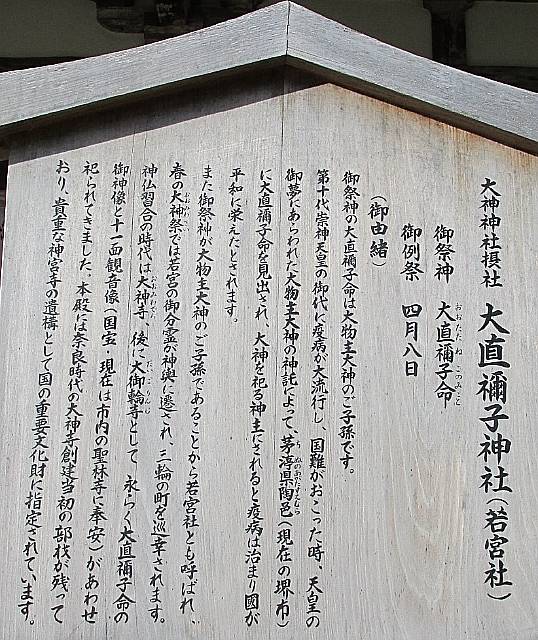 大神神社摂社 大直禰子神社(若宮社)
御祭神 大直禰子命
御例祭 四月八日
(御由緒)
御祭神の大直禰子命は大物主大神のご子孫です。
第十代崇神天皇の御代に疫病が大流行し、国難がおこった時、天皇の
御夢にあらわれた大物主大神の神託によって、茅渟県陶邑(現在の堺市)
に大直禰子命を見出され、大神を祀る神主にされると疫病は治まり国が
平和に栄えたとされます。
また御祭神が大物主大神のご子孫であることから若宮社とも呼ばれ、
春の大神祭では若宮の御分霊が神輿に遷され、三輪の町を巡幸されます。
神仏習合の時代は大神寺、後に大御輪寺として、永らく大直禰子命の
御神像と十一面観音像(国宝・現在は市内の聖林寺に奉安)があわせ
祀られてきました。本殿には奈良時代の大神寺創建当初の部材が残って
おり、貴重な神宮寺の遺構として国の重要文化財に指定されています。